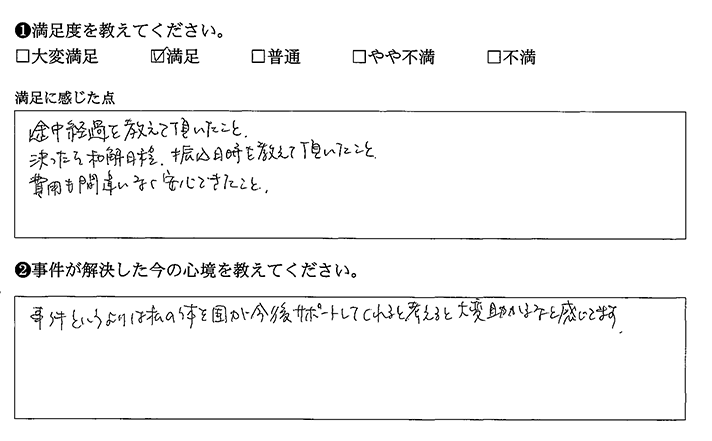 ❶満足度を教えてください。
□大変満足 ☑満足 □普通 □やや不満 □不満
満足に感じた点
途中経過を教えて頂いたこと.
決ったら和解日程、振込日時を教えて頂いたこと.
費用も間違いなく安心できたこと.
❷事件が解決した今の心境を教えてください。
事件というよりは私の体を国が今後サポートしてくれると考えると大変助かるなと感じてます.